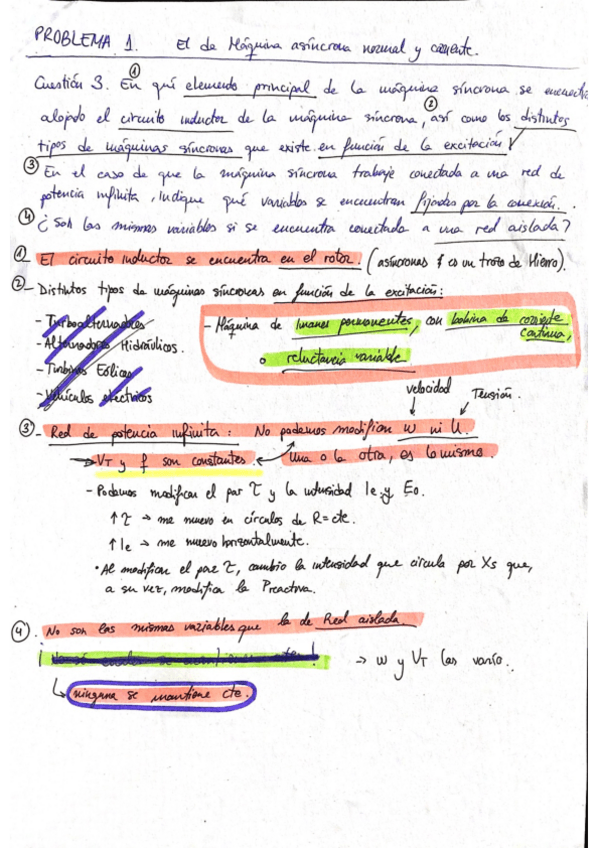 PROBLEMA 1. El de Máquina asíncrona normal y corriente.
Cuestión 3. ① En qué elemento principal de la máquina síncrona se encuentra
alojado el circuito inductor de la máquina síncrona, ② así como los distintos
tipos de máquinas síncronas que existe en función de la excitación
③ En el caso de que la máquina síncrona trabaje conectada a una red de
potencia infinita, indique qué variables se encuentran fijadas por la conexión.
④ ¿Son las mismas variables si se encuentra conectada a una red aislada?
① El circuito inductor se encuentra en el rotor. (asíncronas es un trozo de Hierro).
② - Distintos tipos de máquinas síncronas en función de la excitación:
- Turboalternadores
- Alternadores Hidráulicos.
- Turbinas Eólicas
- Vehículos eléctricos
- Máquina de imanes permanentes, con bobina de corriente
continua,
o reluctancia variable
velocidad Tensión.
③ - Red de potencia infinita: No podemos modificar w ni U.
→ VT y f son constantes. Una o la otra, es lo mismo.
- Podemos modificar el par τ y la intensidad Ie y E0.
↑ τ → me muevo en círculos de R=cte.
↑ Ie → me muevo horizontalmente.
• Al modificar el par τ, cambio la intensidad que circula por Xs que,
a su vez, modifica la Preactiva.
④. No son las mismas variables que la de Red aislada.
→ w y VT las varío.
ninguna se mantiene cte.